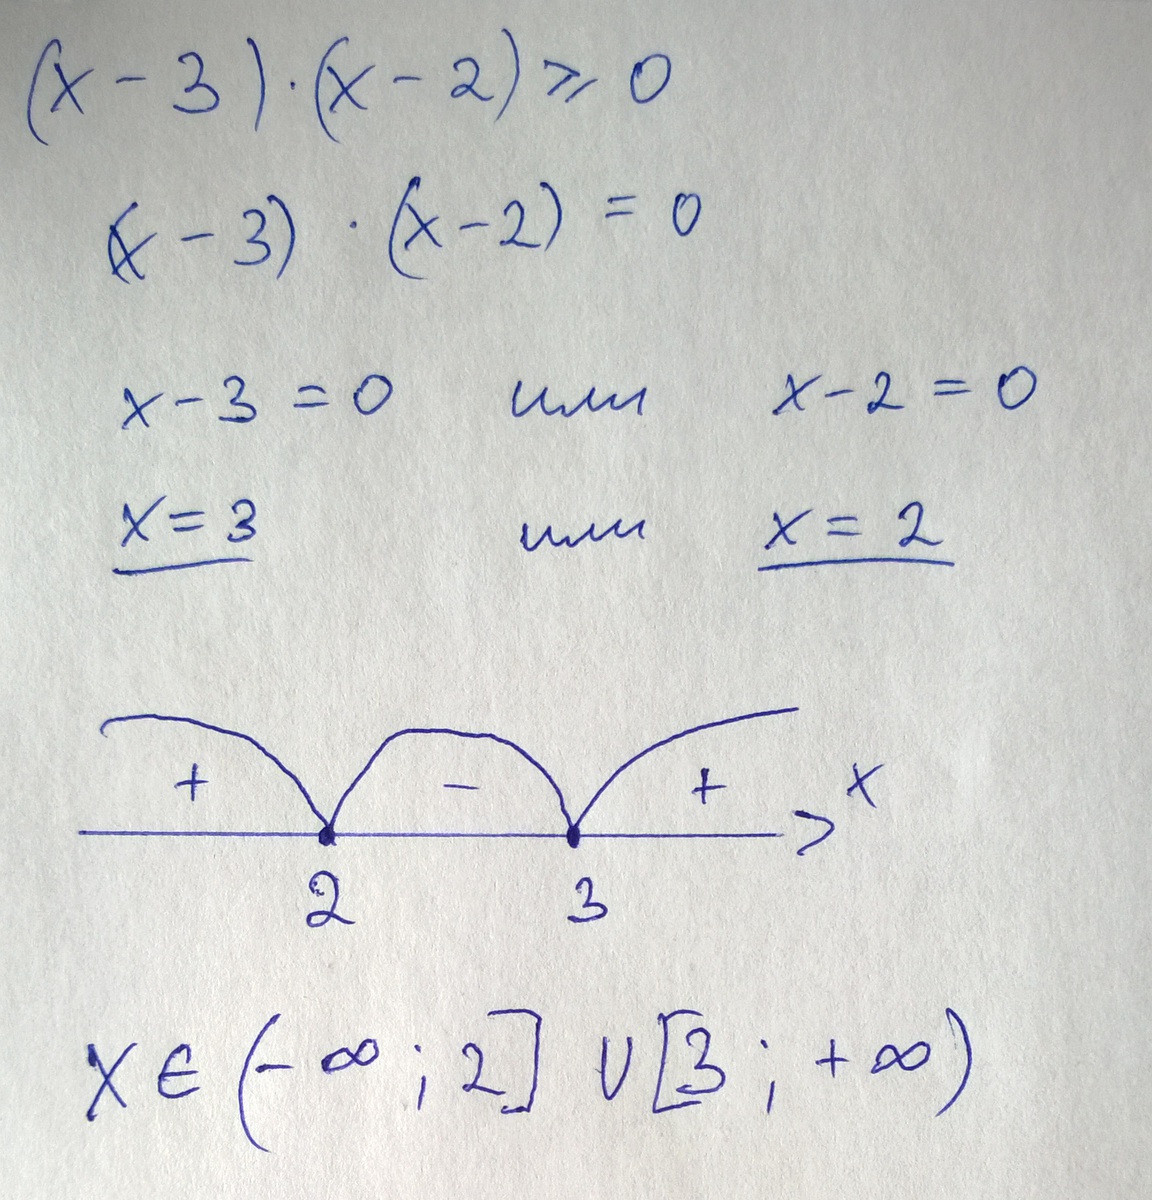 (x - 3) · (x - 2) ⩾ 0
(x - 3) · (x - 2) = 0
x - 3 = 0 или x - 2 = 0
x = 3 или x = 2
+ - + x
2 3
x ∈ (-∞; 2] ∪ [3; +∞)